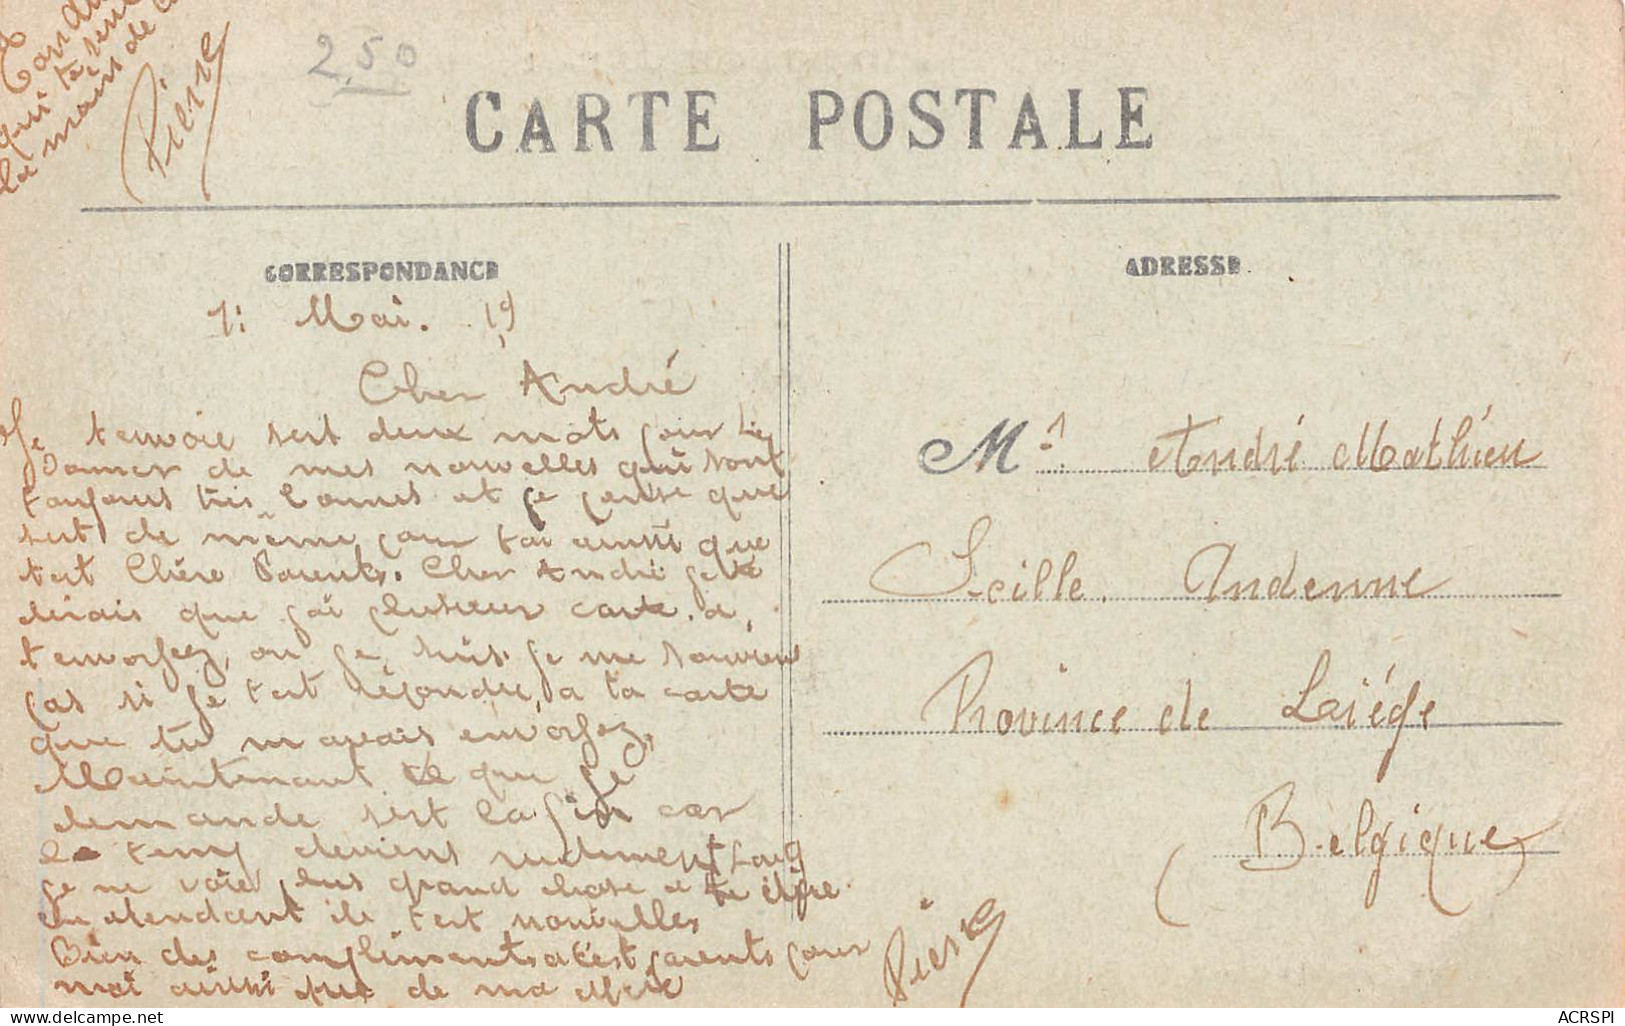 qui te
la main de
Pierre
2.50
CARTE POSTALE
CORRESPONDANCE
1: Mai. 19
Cher André
Je t envoie sest deux mots pour te
donner de mes nouvelles qui sont
toujours très bonnes et je pense que
sest de même pour toi ainsi que
test Chère Parents. Cher André je te
dirais que j'ai plusieur carte. a,
t envoyez, ou je suis. je me souvien
pas si je test répondre, a ta carte
que tu m avais envoyez,
Maintenant ce que je
demande sest la fin car
le temp devient rudement long
je ne voie plus grand chose a te dire.
en atendant de test nouvelles
Bien des compliments a test parents pour
moi ainsi que de ma Mère
Pierre
ADRESSE
Mr. André Mathieu
Seille. Andenne
Province de Laiége
(Belgique)
ACRSPI
www.delcampe.net